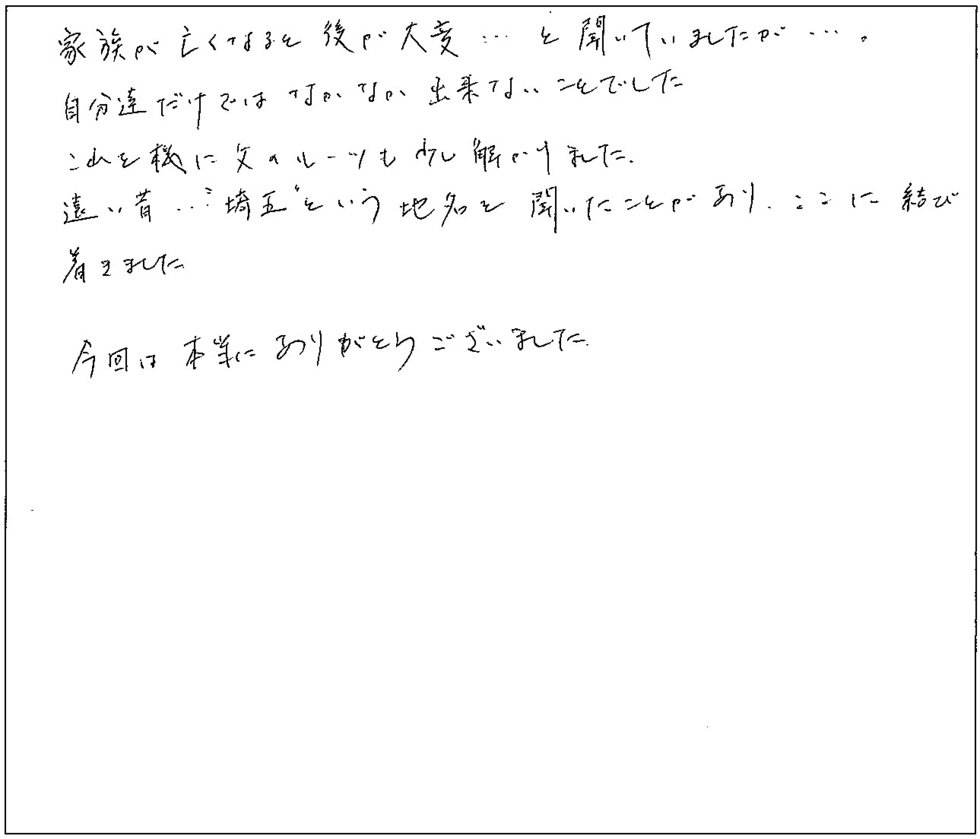 家族が亡くなると後が大変…と聞いていましたが…。
自分達だけではなかなか出来ないことでした
これを機に父のルーツも少し解かりました.
遠い昔…“埼玉”という地名を聞いたことがあり、ここに結び
着きました
今回は本当にありがとうございました.